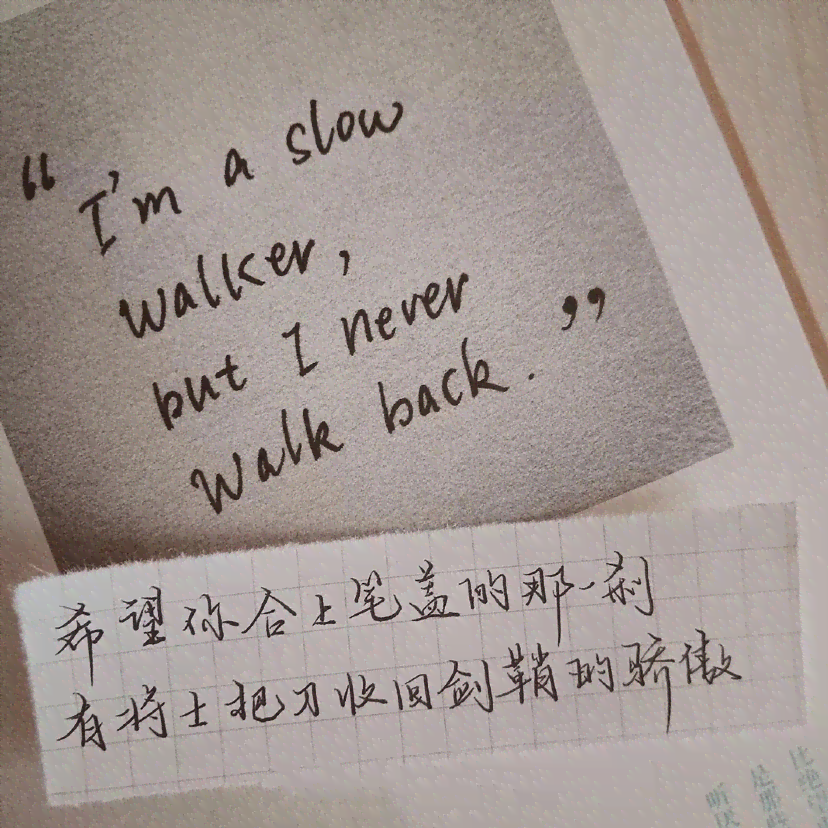 “ I'm a slow
walker,
but I never
walk back. ”
希望你合上笔盖的那一刹
有将士把刀收回剑鞘的骄傲